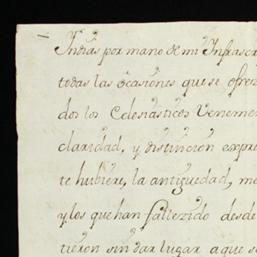 Indias por mano de mi Infrascr
todas las ocasiones que se ofrez
dos los Eclesiasticos Veneme
claridad, y distincion expre
te hubiere, la antiguedad, me
y los que han fallezido desde
tieron sin dar lugar a que s